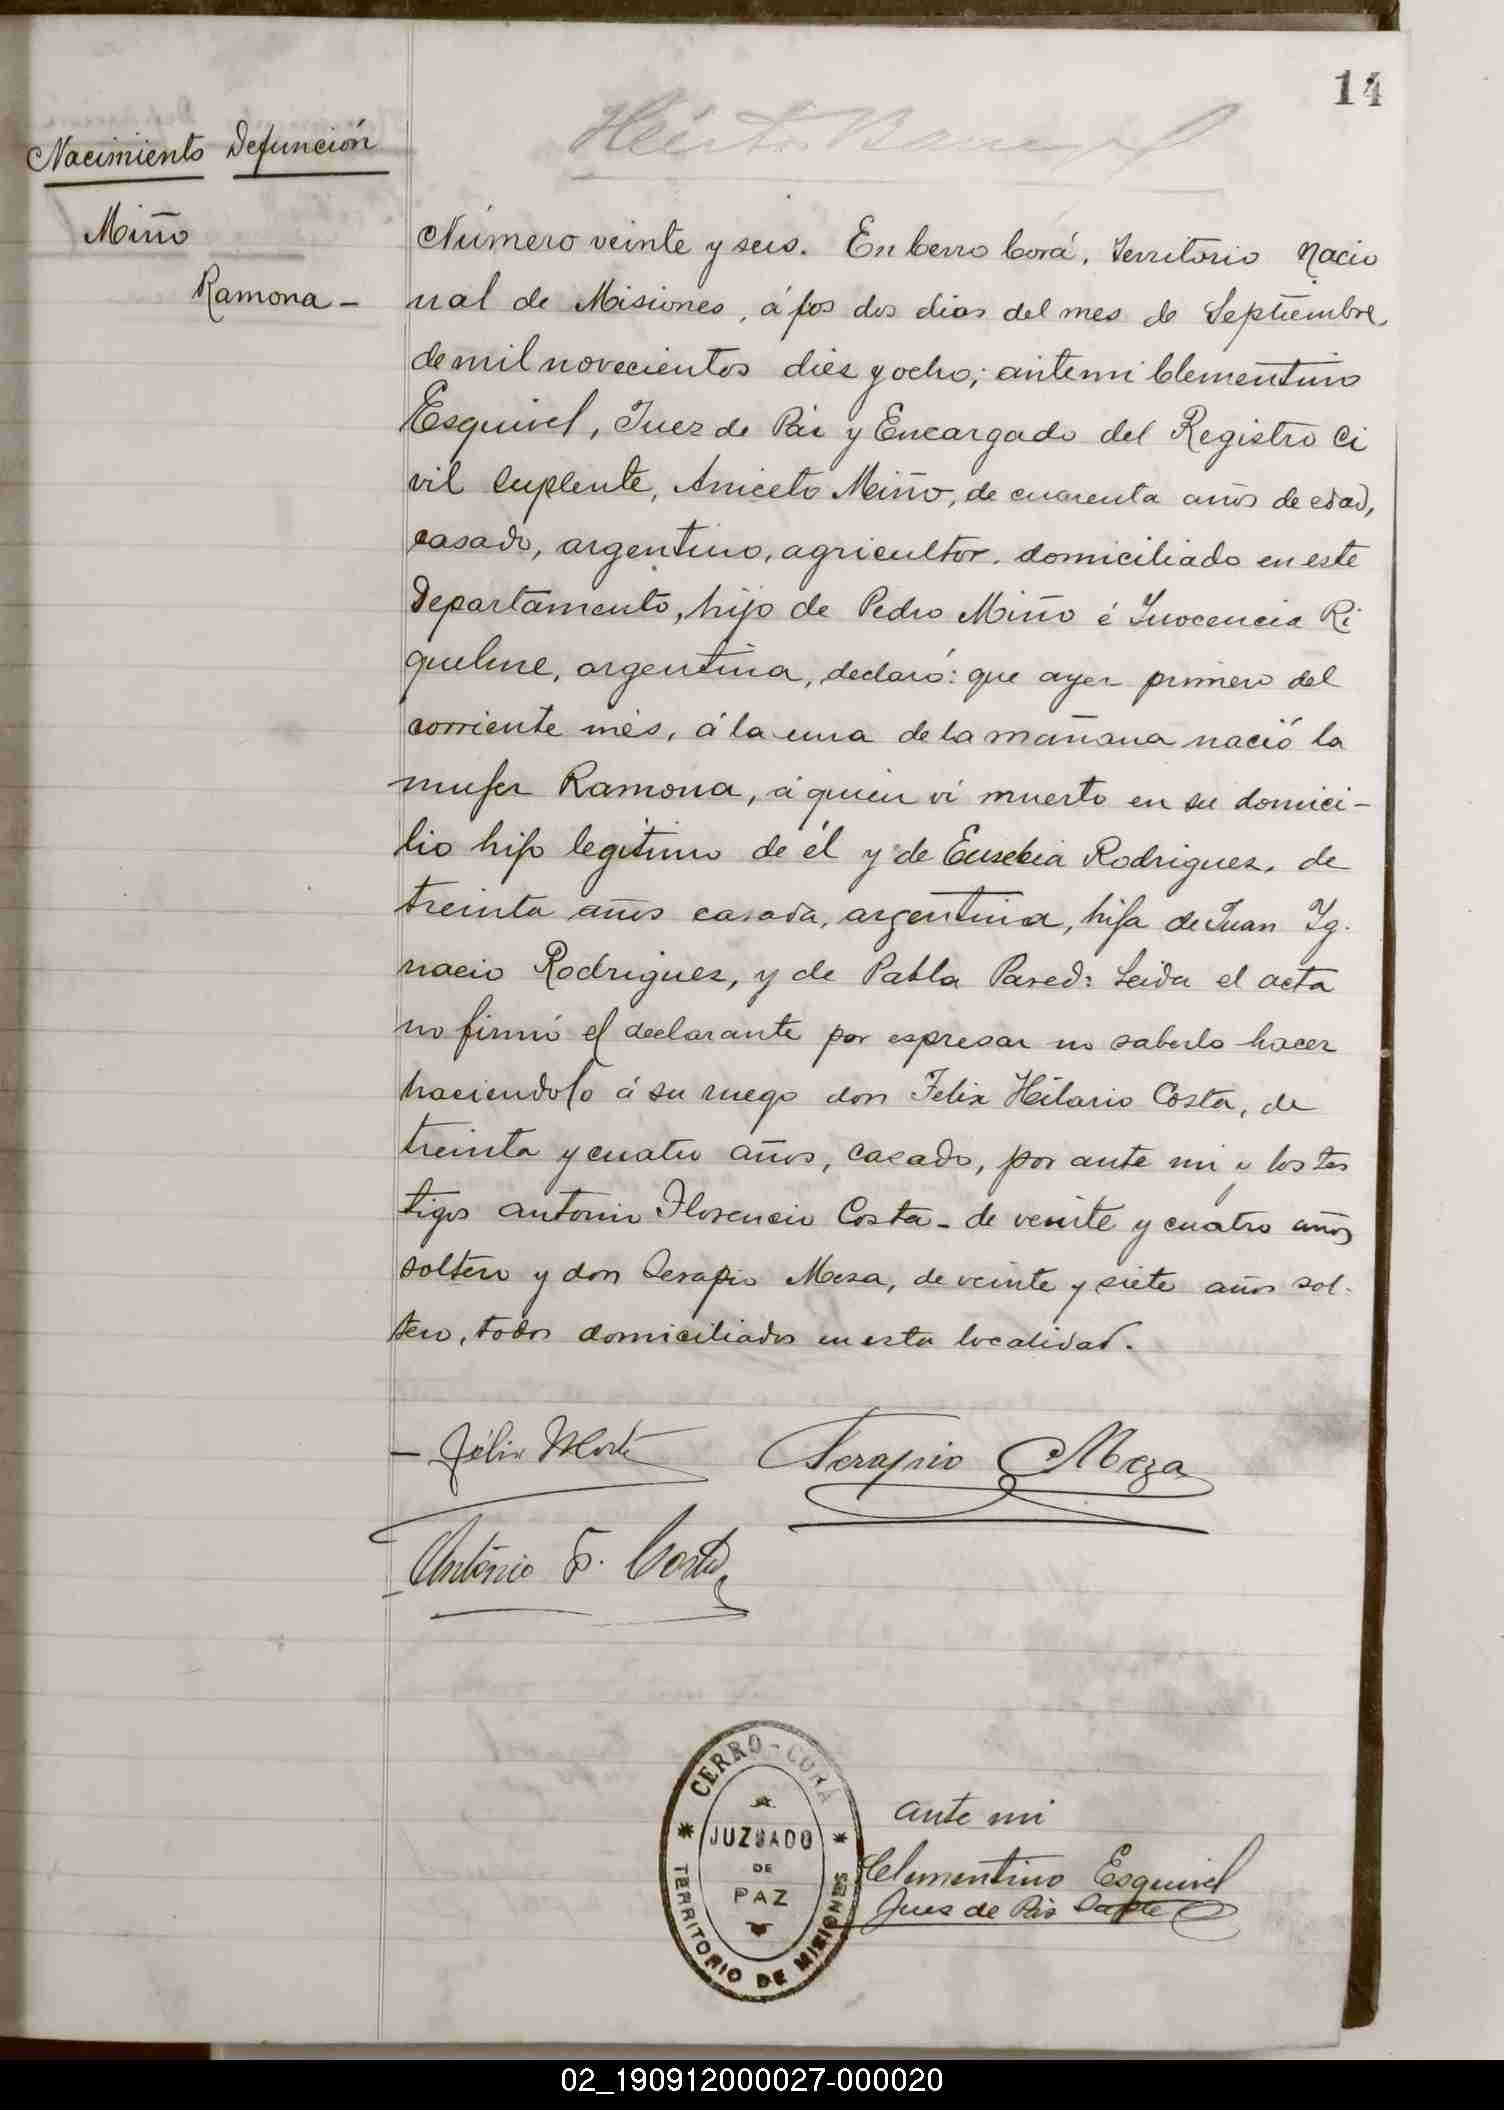 14
Nacimiento Defunción
Miño
Ramona-
Número veinte y seis. En Cerro Corá, Territorio Nacio
nal de Misiones, á los dos dias del mes de Septiembre,
de mil novecientos diez y ocho; ante mi Clementino
Esquivel, Juez de Páz y Encargado del Registro Ci
vil Suplente, Aniceto Miño, de cuarenta años de edad,
casado, argentino, agricultor, domiciliado en este
Departamento, hijo de Pedro Miño é Inocencia Ri
quelme, argentina, declaró: que ayer primero del
corriente més, á la una de la mañana nació la
mujer Ramona, á quien ví muerto en su domici-
lio hijo legitimo de él y de Eusebia Rodriguez, de
treinta años casada, argentina, hija de Juan Ig-
nacio Rodriguez, y de Pabla Pared: Leida el acta
no firmó el declarante por espresar no saberlo hacer
haciendolo á su ruego don Felix Hilario Costa, de
treinta y cuatro años, casado, por ante mi y los tes
tigos Antonio Florencio Costa- de veinte y cuatro años
soltero y don Serapio Meza, de veinte y siete años sol-
tero, todos domiciliados en esta localidad.
Serapio Meza
Antonio F. Costa
ante mi
Clementino Esquivel
Juez de Páz Splte
CERRO-CORÁ
JUZGADO
DE
PAZ
TERRITORIO DE MISIONES
02_190912000027-000020